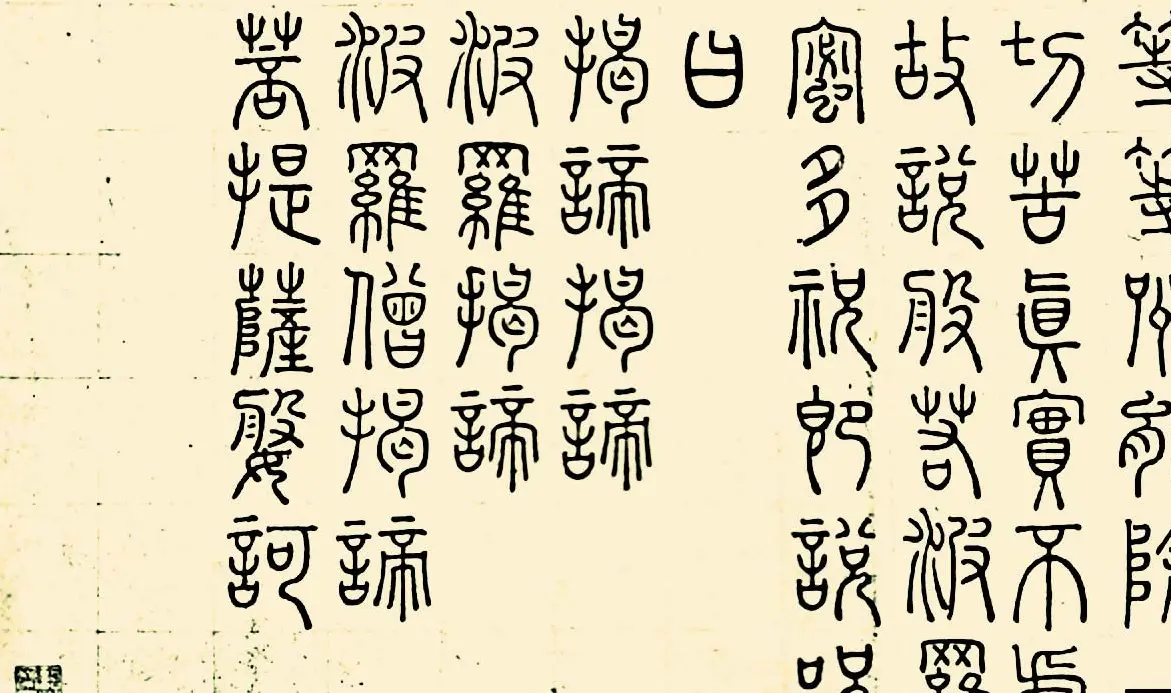 等等呪能除一
切苦眞實不虛
故說般若波羅
蜜多祝即說呪
曰
揭諦揭諦
波羅揭諦
波羅僧揭諦
菩提薩媻訶